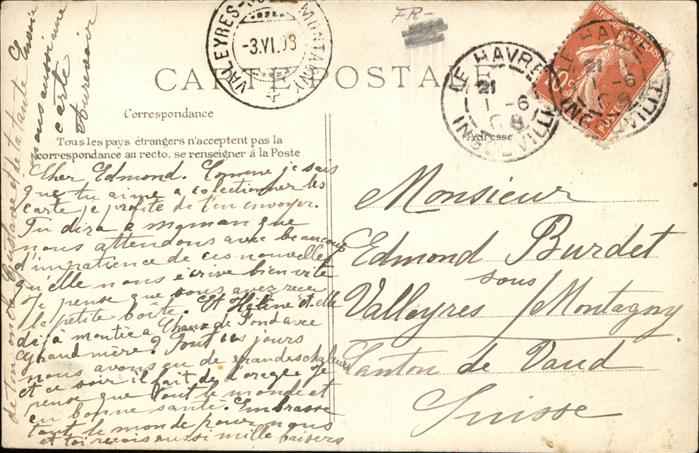 FR-
VALLEYRES-SOUS-MONTAGNY
-3.VI.08
LE HAVRE
21
1-6
08
INGOUVILLE
LE HAVRE
21
6
08
INGOUVILLE
RÉPUBLIQUE FRANÇAISE
10c
POSTES
CARTE POSTALE
Correspondance
Tous les pays étrangers n'acceptent pas la
correspondance au recto, se renseigner à la Poste
Adresse
Cher Edmond. Comme je sais
que tu aime a colectionner les
carte je profite de t'en envoyer.
Tu dira a maman que
nous attendons avec beaucoup
d'impatience de ces nouvelles
qu'elle nous écrive bien vite
Je pense que vous avez reçe
la petite boite. Et Hélène est elle
déja montée a Chaux de Fond avec
grand mère? Tout ces jours
nous avons eu de grandes chaleurs
et ce soir il fait de l'orage Je
pense que tout le monde et
en bonne santé. Embrasse
tout le monde pour nous
et toi reçois aussi mille baisers
de ton oncle Gustave et de ta tante
nous aussi une
carte
Aurevoir
Monsieur
Edmond Burdet
Valleyres sous / Montagny
Canton de Vaud
Suisse